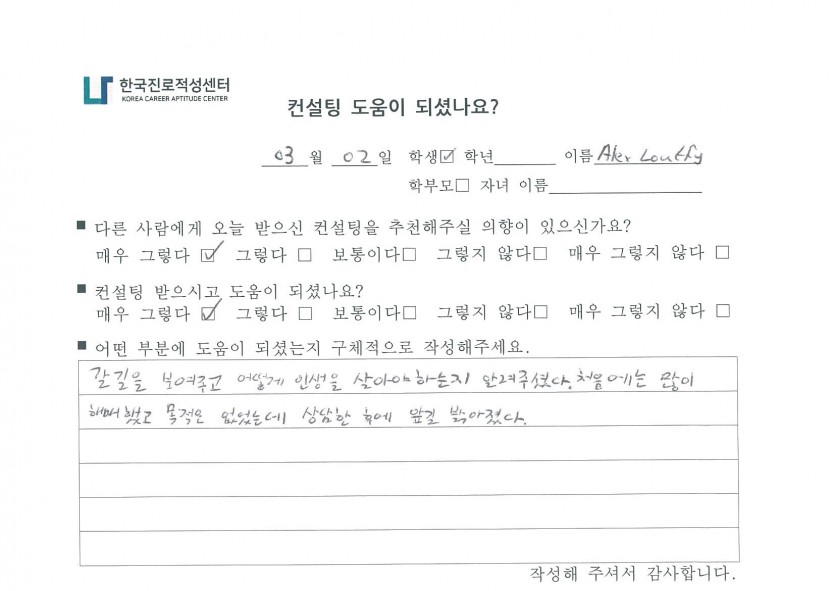 한국진로적성센터
KOREA CAREER APTITUDE CENTER
컨설팅 도움이 되셨나요?
03 월 02 일 학생☑ 학년______ 이름 Loutfy
학부모□ 자녀 이름______
■ 다른 사람에게 오늘 받으신 컨설팅을 추천해주실 의향이 있으신가요?
매우 그렇다 ☑ 그렇다 □ 보통이다□ 그렇지 않다□ 매우 그렇지 않다 □
■ 컨설팅 받으시고 도움이 되셨나요?
매우 그렇다 ☑ 그렇다 □ 보통이다□ 그렇지 않다□ 매우 그렇지 않다 □
■ 어떤 부분에 도움이 되셨는지 구체적으로 작성해주세요.
갈길을 보여주고 어떻게 인생을 살아야하는지 알려주셨다. 처음에는 많이
해매했고 목적은 없었는데 상담한 후에 앞길 밝아졌다.
작성해 주셔서 감사합니다.